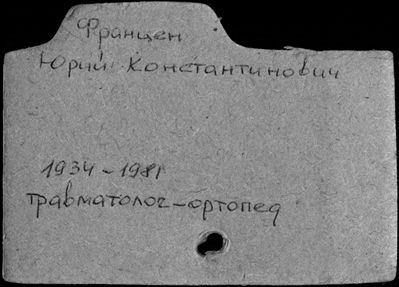 Францен
Юрий Константинович
1934-1981
травматолог-ортопед